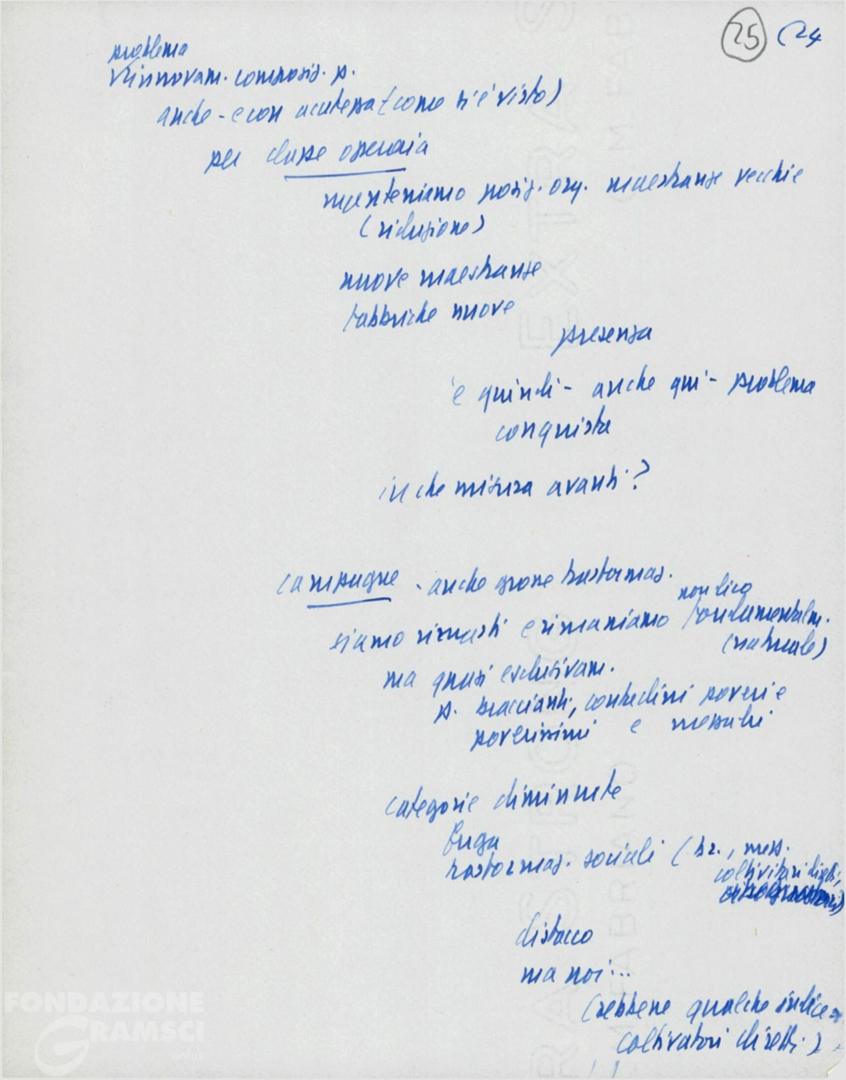 25 (24
problema
rinnovam. composiz. p.
anche - e con acutezza (come si è visto)
per classe operaia
manteniamo posiz. org. maestranze vecchie
(riduzione)
nuove maestranze
fabbriche nuove
presenza
è quindi - anche qui - problema
conquista
in che misura avanti?
campagne - anche grosse trasformaz.
non dico
siamo rimasti e rimaniamo fondamentalm.
(naturale)
ma quasi esclusivam.
p. braccianti, contadini poveri e
poverissimi e mezzadri
categorie diminuite
fuga
trasformaz. sociali (br., mezz.
coltivatori
distacco
ma noi...
(sebbene qualche indice
coltivatori diretti)
FONDAZIONE
GRAMSCI